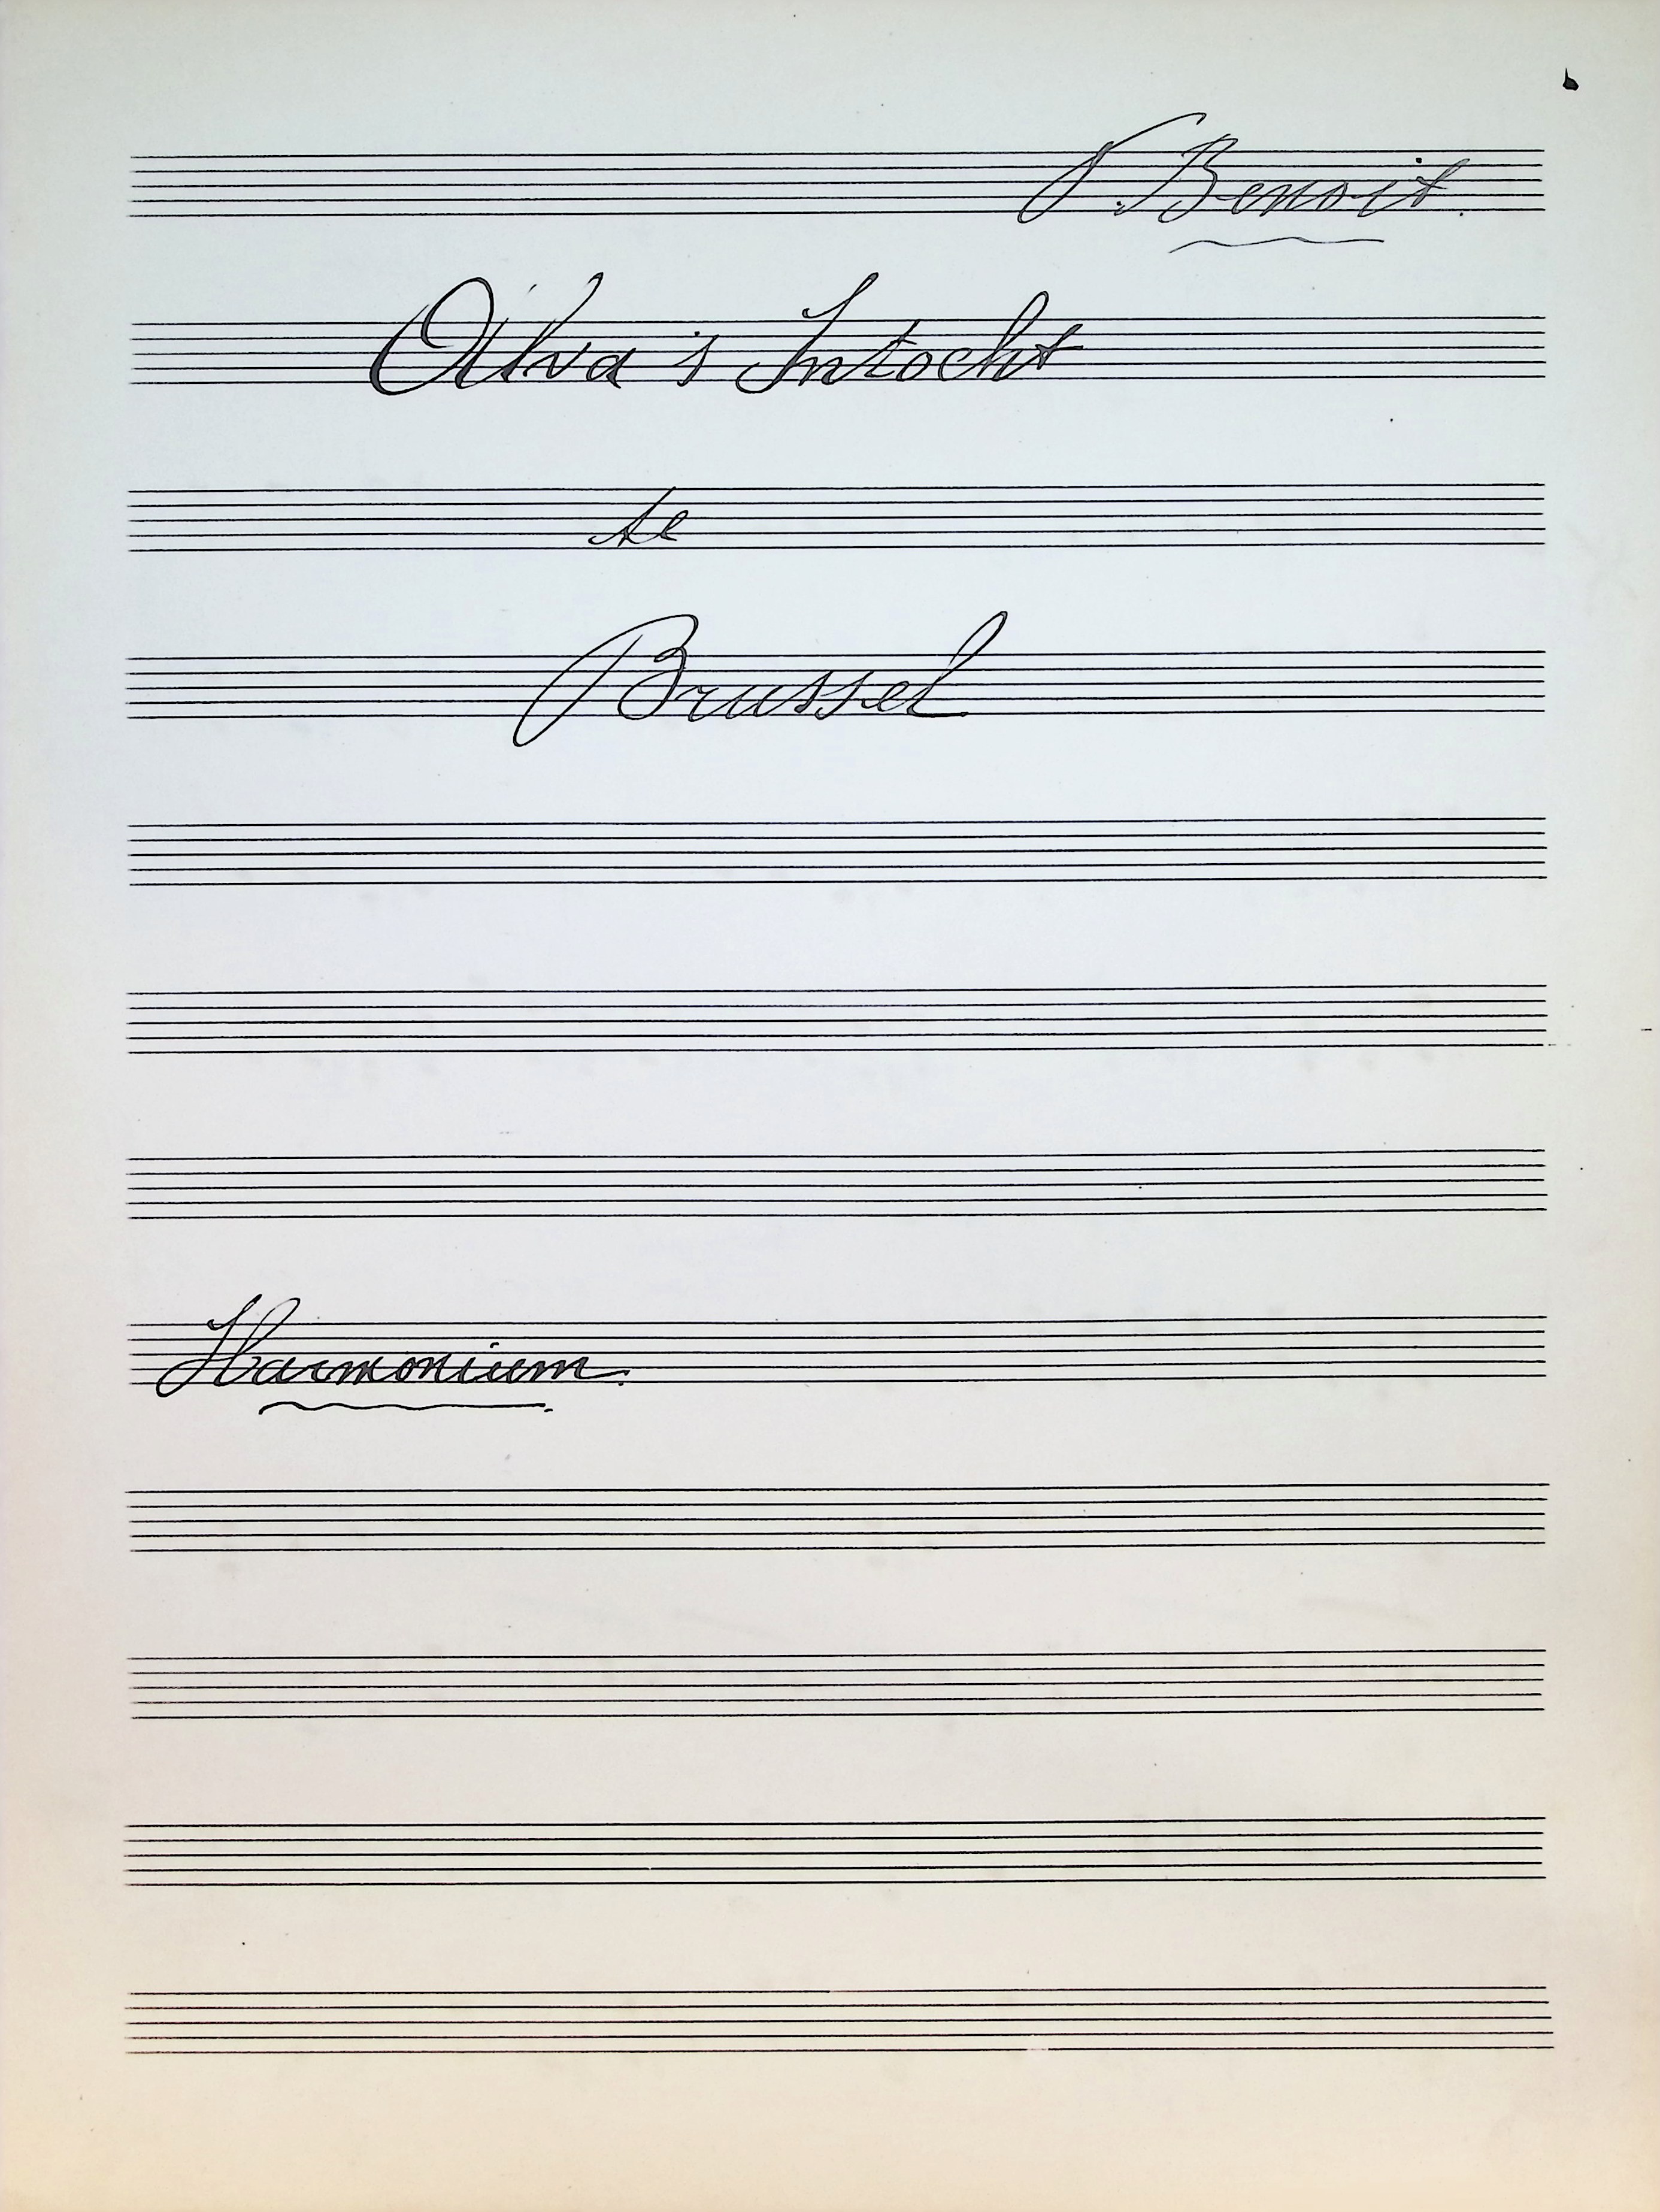 P. Benoit.
Alva's Intocht
te
Brussel
Harmonium.